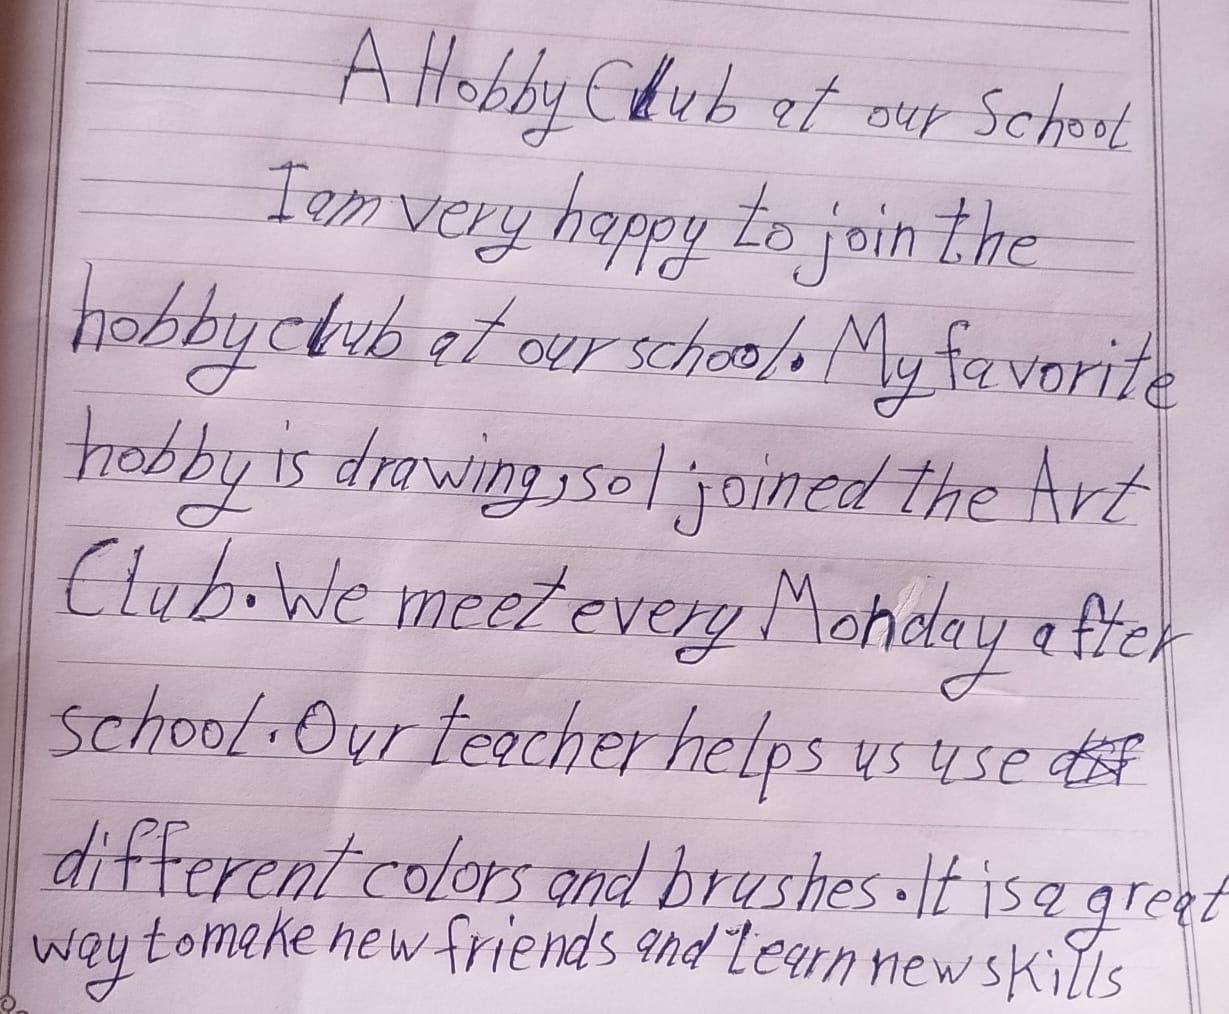 A Hobby Club at our School
I am very happy to join the
hobby club at our school. My favorite
hobby is drawing, so I joined the Art
Club. We meet every Monday after
school. Our teacher helps us use
different colors and brushes. It is a great
way to make new friends and learn new skills